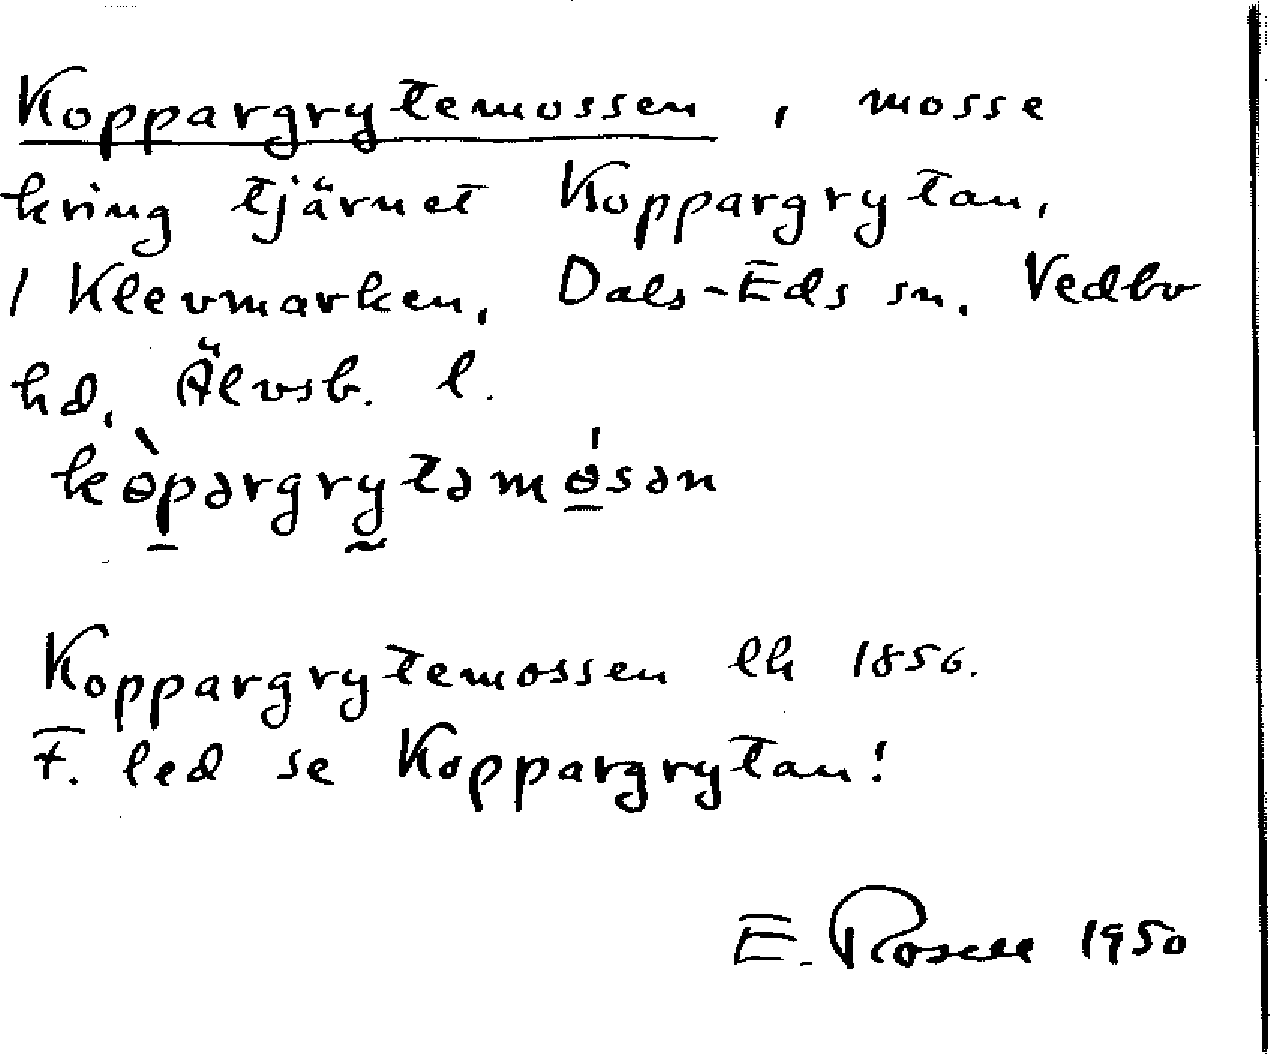 Koppargrytemossen, mosse
kring tjärnet Koppargrytan,
/ Klevmarken, Dals-Eds sn, Vedbo
hd, Älvsb. l.
kɵ̀pərgry̰təmɵ́sən
Koppargrytemossen lh 1856.
F. led se Koppargrytan!
E. Rosell 1950